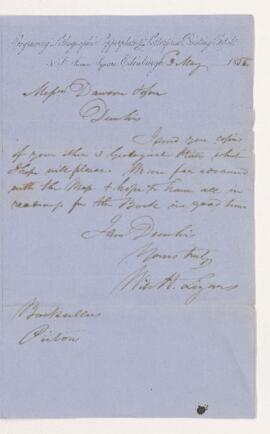 Engraving, Lithographic, Copperplate & Letterpress Printing
Edinburgh 3 May 185
Messrs Dawson & Son
Dear Sirs
I send you copies
of your other 3 Geological Plates which
I hope will please. Am far advanced
with the Map & hope to have all in
readiness for the Book in good time
I am Dear Sirs
Yours truly
Wm H. Lizars
Booksellers
Pictou